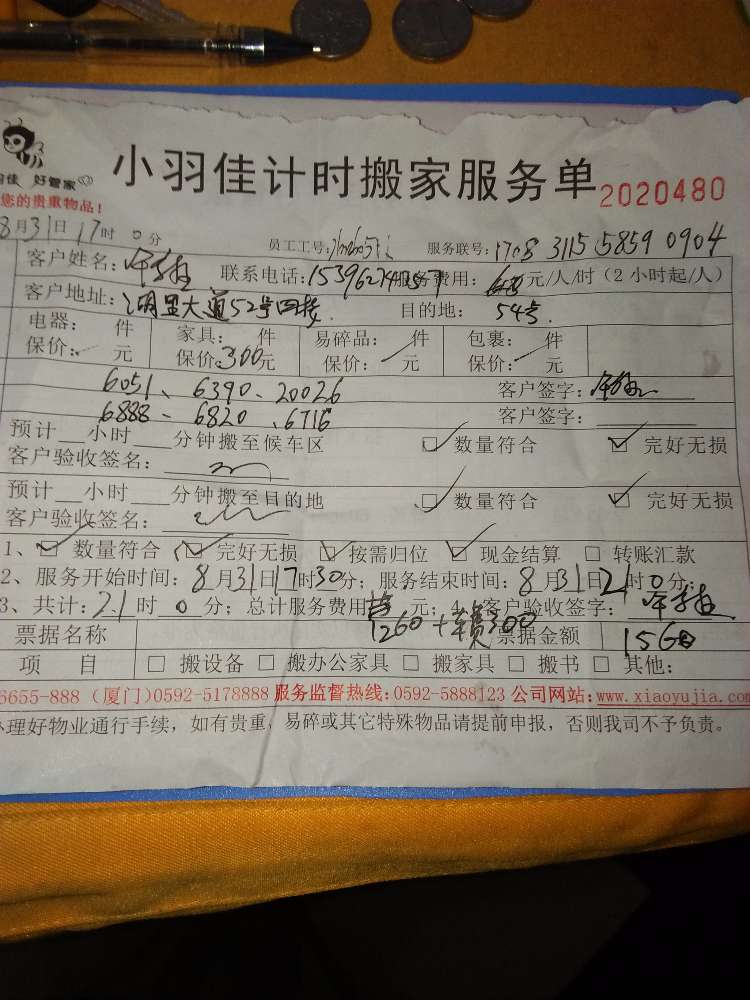 小羽佳计时搬家服务单 2020480
佳 好管家
您的贵重物品！
8月31日17时0分 员工工号： 服务联号：1708 3115 5859 0904
客户姓名： 联系电话： 服务费用： 元/人/时（2小时起/人）
客户地址：湖里大道52号四楼 目的地：54号
电器： 件 家具： 件 易碎品： 件 包裹： 件
保价： 元 保价：300元 保价： 元 保价： 元
6051、6390、20026 客户签字：
6888、6820、6716 客户签字：
预计__小时__分钟搬至候车区 ☑数量符合 ☑完好无损
客户验收签名：
预计__小时__分钟搬至目的地 ☑数量符合 ☑完好无损
客户验收签名：
1、☑数量符合 ☑完好无损 ☑按需归位 ☑现金结算 □转账汇款
2、服务开始时间：8月31日17时30分；服务结束时间：8月31日21时0分；
3、共计：21时0分；总计服务费用 元；4、客户验收签字：
1260+车费300
票据名称 票据金额 1560
项 目 □搬设备 □搬办公家具 □搬家具 □搬书 □其他：
6655-888（厦门）0592-5178888 服务监督热线：0592-5888123 公司网站：www.xiaoyujia.com
办理好物业通行手续，如有贵重，易碎或其它特殊物品请提前申报，否则我司不予负责。